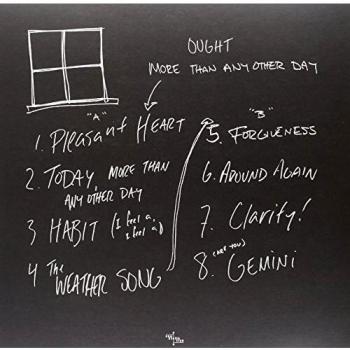 OUGHT
MORE THAN ANY OTHER DAY
"A"
1. Pleasant HEART
2. TODAY, MORE THAN
ANY OTHER DAY
3 HABIT (I feel a,
I feel a)
4 The
WEATHER SONG
"B"
5. FORGIVENESS
6. AROUND AGAIN
7. Clarity!
8. GEMINI